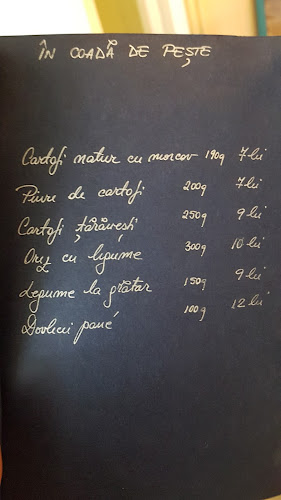 ÎN COADĂ DE PEȘTE
Cartofi natur cu morcov 190g 7 lei
Piure de cartofi 200g 7 lei
Cartofi țărănești 250g 9 lei
Orez cu legume 300g 10 lei
Legume la grătar 150g 9 lei
Dovlecei pané 100g 12 lei